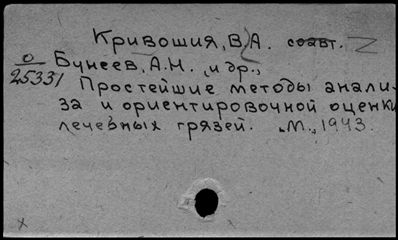 Кривошия, В. А. соавт.
О
25331
Бунеев, А.Н. , и др.,
Простейшие методы анали-
за и ориентировочной оценки
лечебных грязей. М., 1943.
x